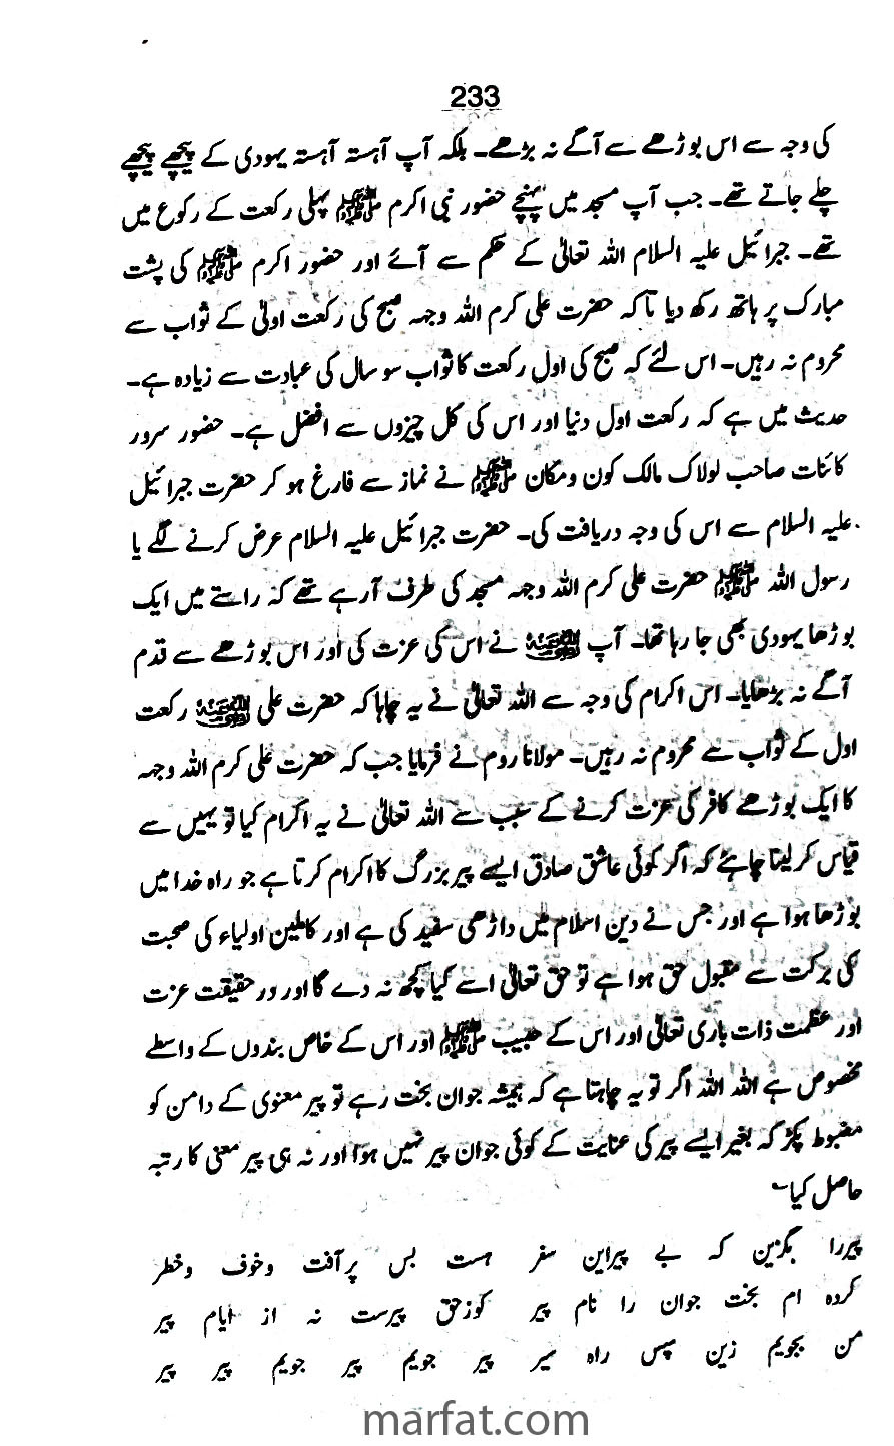 233
کی وجہ سے اس بوڑھے سے آگے نہ بڑھے۔ بلکہ آپ آہستہ آہستہ یہودی کے پیچھے پیچھے
چلے جاتے تھے۔ جب آپ مسجد میں پہنچے حضور نبی اکرم ﷺ پہلی رکعت کے رکوع میں
تھے۔ جبرائیل علیہ السلام اللہ تعالیٰ کے حکم سے آئے اور حضور اکرم ﷺ کی پشت
مبارک پر ہاتھ رکھ دیا تاکہ حضرت علی کرم اللہ وجہہ صبح کی رکعت اولیٰ کے ثواب سے
محروم نہ رہیں۔ اس لئے کہ صبح کی اول رکعت کا ثواب سو سال کی عبادت سے زیادہ ہے۔
حدیث میں ہے کہ رکعت اول دنیا اور اس کی کل چیزوں سے افضل ہے۔ حضور سرور
کائنات صاحب لولاک مالک کون ومکان ﷺ نے نماز سے فارغ ہو کر حضرت جبرائیل
علیہ السلام سے اس کی وجہ دریافت کی۔ حضرت جبرائیل علیہ السلام عرض کرنے لگے یا
رسول اللہ ﷺ حضرت علی کرم اللہ وجہہ مسجد کی طرف آرہے تھے کہ راستے میں ایک
بوڑھا یہودی بھی جا رہا تھا۔ آپ رضی اللہ عنہ نے اس کی عزت کی اور اس بوڑھے سے قدم
آگے نہ بڑھایا۔ اس اکرام کی وجہ سے اللہ تعالیٰ نے یہ چاہا کہ حضرت علی رضی اللہ عنہ رکعت
اول کے ثواب سے محروم نہ رہیں۔ مولانا روم نے فرمایا جب کہ حضرت علی کرم اللہ وجہہ
کا ایک بوڑھے کافر کی عزت کرنے کے سبب سے اللہ تعالیٰ نے یہ اکرام کیا تو یہیں سے
قیاس کرلینا چاہئے کہ اگر کوئی عاشق صادق ایسے پیر بزرگ کا اکرام کرتا ہے جو راہ خدا میں
بوڑھا ہوا ہے اور جس نے دین اسلام میں داڑھی سفید کی ہے اور کاملین اولیاء کی صحبت
کی برکت سے مقبول حق ہوا ہے تو حق تعالیٰ اسے کیا کچھ نہ دے گا اور در حقیقت عزت
اور عظمت ذات باری تعالیٰ اور اس کے حبیب ﷺ اور اس کے خاص بندوں کے واسطے
مخصوص ہے اللہ اللہ اگر تو یہ چاہتا ہے کہ ہمیشہ جوان بخت رہے تو پیر معنوی کے دامن کو
مضبوط پکڑ کہ بغیر ایسے پیر کی عنایت کے کوئی جوان پیر نہیں ہوا اور نہ ہی پیر معنی کا رتبہ
حاصل کیا۔
پیررا بگزین کہ بے پیراین سفر ہست بس پر آفت وخوف وخطر
کردہ ام بخت جوان را نام پیر کوزحق پیرست نہ از ایام پیر
من بجویم زین سپس راہ سیر پیر جویم پیر جویم پیر پیر
marfat.com